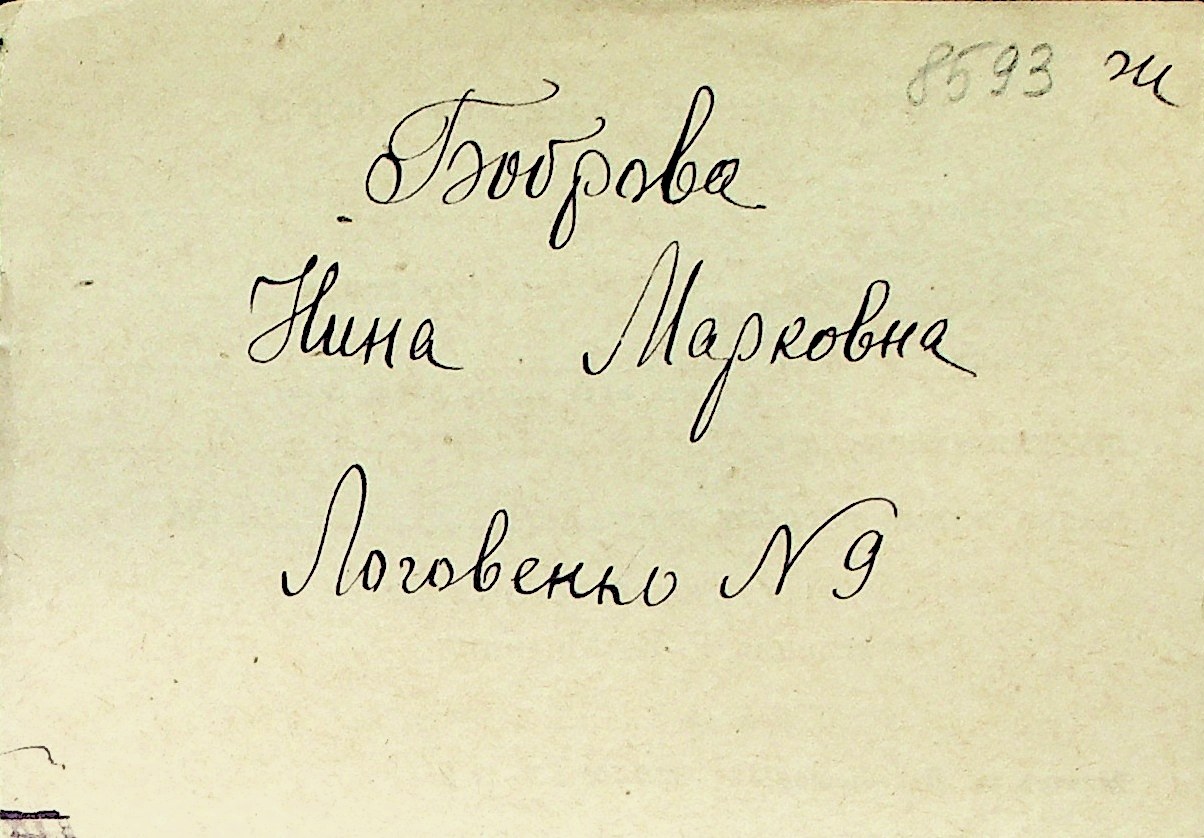 8593 ж
Боброва
Нина Марковна
Логовенко N 9